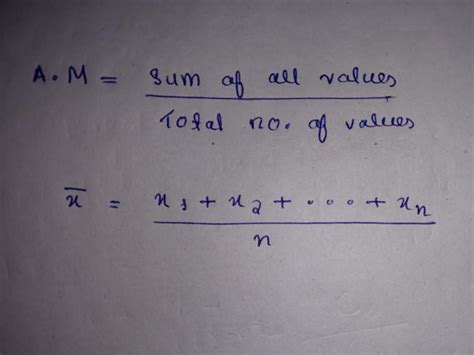 A.M = Sum of all values
Total no. of values
x̄ = x₁ + x₂ + ... + xₙ
n